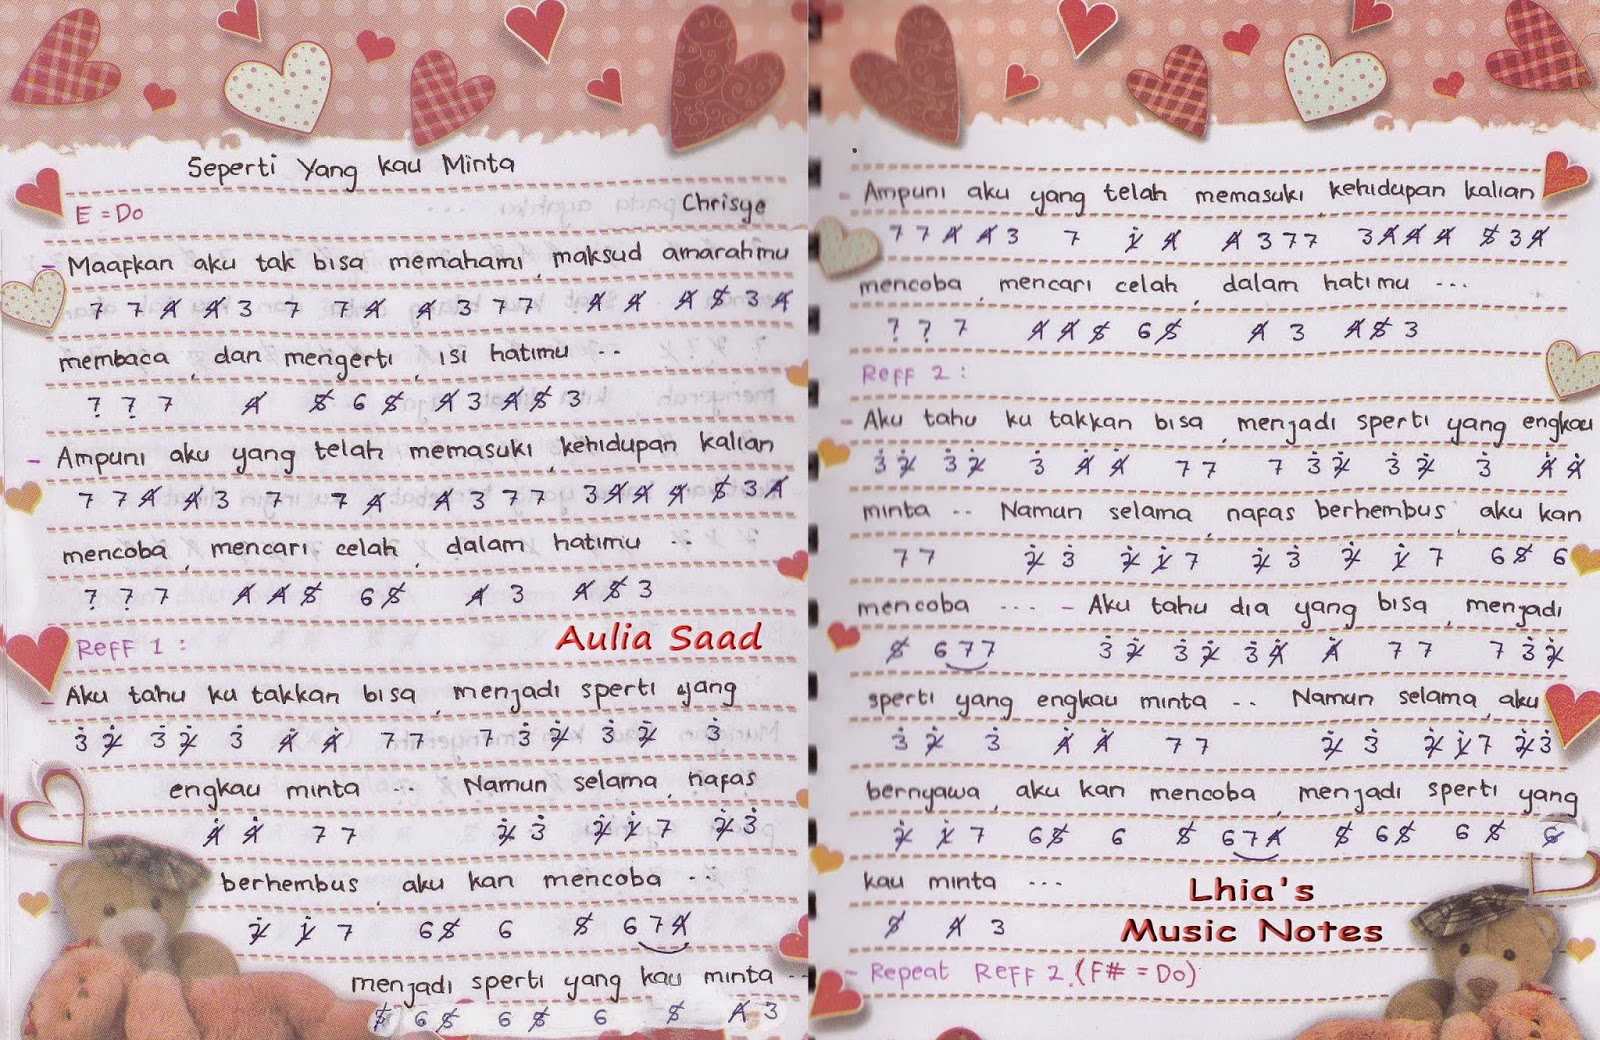 Seperti Yang Kau Minta
E = Do
Chrisye
- Maafkan aku tak bisa memahami, maksud amarahmu
7 7 4̸ 4̸ 3 7 7 4̸ 4̸ 3 7 7 4̸ 4̸ 4̸ 5̸ 3 4̸
membaca, dan mengerti, isi hatimu ..
7̣ 7̣ 7 4̸ 5̸ 6 5̸ 4̸ 3 4̸ 5̸ 3
- Ampuni aku yang telah memasuki, kehidupan kalian
7 7 4̸ 4̸ 3 7 7 4̸ 4̸ 3 7 7 3 4̸ 4̸ 4̸ 5̸ 3 4̸
mencoba, mencari celah, dalam hatimu ..
7̣ 7̣ 7 4̸ 4̸ 5̸ 6 5̸ 4̸ 3 4̸ 5̸ 3
Reff 1 :
Aulia Saad
- Aku tahu ku takkan bisa, menjadi sperti yang
3̇ 2̸̇ 3̇ 2̸̇ 3̇ 4̸̇ 4̸̇ 7 7 7 3̇ 2̸̇ 3̇ 2̸̇ 3̇
engkau minta ... Namun selama, nafas
4̸̇ 4̸̇ 7 7 2̸̇ 3̇ 2̸̇ 1̸̇ 7 2̸̇ 3̇
berhembus, aku kan mencoba ..
2̸̇ 1̸̇ 7 6 5̸ 6 5̸ 6 7 4̸
menjadi sperti yang kau minta ..
5̸ 6 5̸ 6 5̸ 6 5̸ 4̸ 3
- Ampuni aku yang telah memasuki, kehidupan kalian
7 7 4̸ 4̸ 3 7 1̸̇ 4̸ 4̸ 3 7 7 3 4̸ 4̸ 4̸ 5̸ 3 4̸
mencoba, mencari celah, dalam hatimu ...
7̣ 7̣ 7 4̸ 4̸ 5̸ 6 5̸ 4̸ 3 4̸ 5̸ 3
Reff 2 :
- Aku tahu ku takkan bisa, menjadi sperti yang engkau
3̇ 2̸̇ 3̇ 2̸̇ 3̇ 4̸̇ 4̸̇ 7 7 7 3̇ 2̸̇ 3̇ 2̸̇ 3̇ 4̸̇ 4̸̇
minta .. Namun selama, nafas berhembus, aku kan
7 7 2̸̇ 3̇ 2̸̇ 1̸̇ 7 2̸̇ 3̇ 2̸̇ 1̸̇ 7 6 5̸ 6
mencoba ... - Aku tahu dia yang bisa, menjadi
5̸ 6 7 7 3̇ 2̸̇ 3̇ 2̸̇ 3̇ 4̸̇ 4̸̇ 7 7 7 3̇ 2̸̇
sperti yang engkau minta .. Namun selama, aku
3̇ 2̸̇ 3̇ 4̸̇ 4̸̇ 7 7 2̸̇ 3̇ 2̸̇ 1̸̇ 7 2̸̇ 3̇
bernyawa, aku kan mencoba, menjadi sperti yang
2̸̇ 1̸̇ 7 6 5̸ 6 5̸ 6 7 4̸ 5̸ 6 5̸ 6 5̸ 6
kau minta ...
5̸ 4̸ 3
Lhia's
Music Notes
- Repeat Reff 2. (F# = Do)